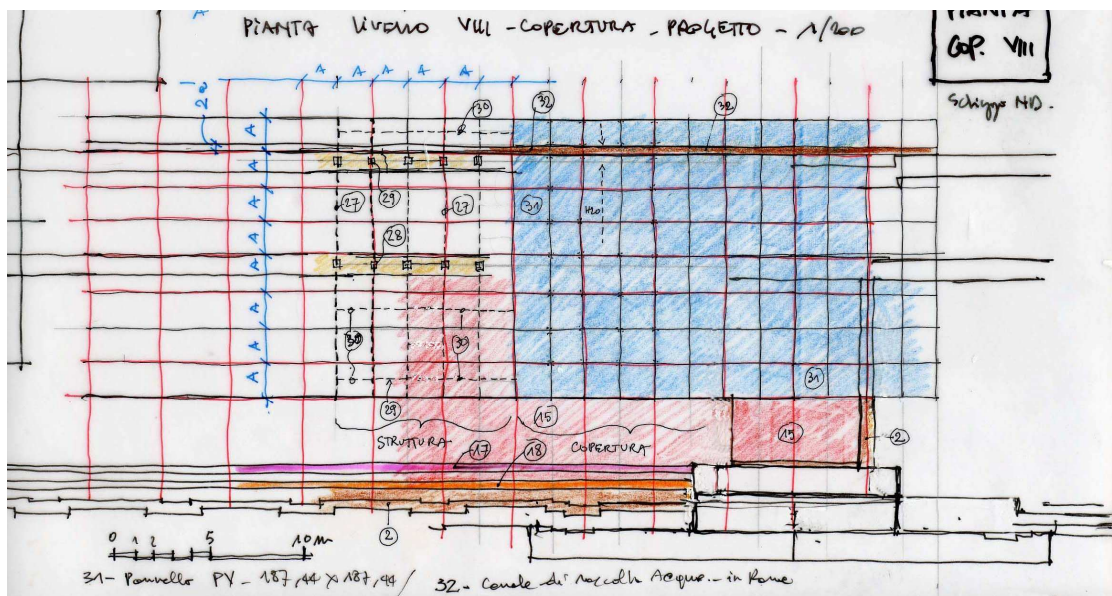 PIANTA LIVELLO VIII - COPERTURA - PROGETTO - 1/200
PIANTA
COP. VIII
Schizzo
A A A A A
A
30 32 32
2
A
A
29
27 27 31 H20
A
28
A
A
30 30
A
31
A
29
15
15
STRUTTURA COPERTURA
2
17
18
2
0 1 2 5 10 m
31 - Pannello PV - 187,44 X 187,44 / 32 - Canale di raccolta Acqua - in Rame